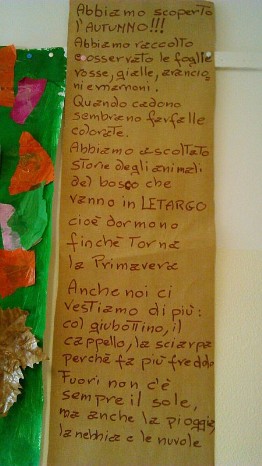 Abbiamo scoperto
l'AUTUNNO!!!
Abbiamo raccolto
e osservato le foglie
rosse, gialle, arancio,
ni e marroni.
Quando cadono
sembrano farfalle
colorate.
Abbiamo ascoltato
storie degli animali
del bosco che
vanno in LETARGO
cioè dormono
finchè Torna
la Primavera
Anche noi ci
vestiamo di più:
col giubottino, il
cappello, la sciarpa
perchè fa più freddo
Fuori non c'è
sempre il sole,
ma anche la pioggia,
la nebbia e le nuvole